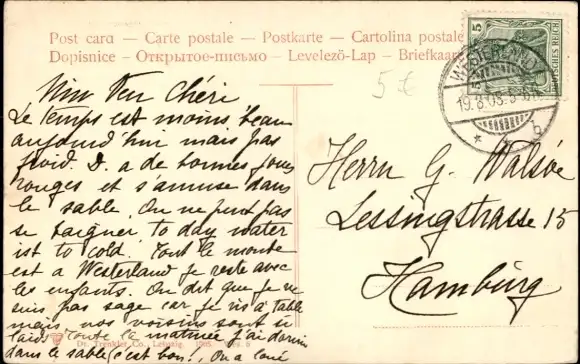 Post card — Carte postale — Postkarte — Cartolina postale
Dopisnice — Открытое-письмо — Levelező-Lap — Briefkaart
5
DEUTSCHES REICH
WESTERLAND
19.8.08.
* b
5 €
Mon Chéri
Le temps est moins beau
aujourd'hui mais pas
froid. D. a de bonnes joues
rouges et s'amuse dans
le sable. On ne peut pas
se baigner To day water
ist to cold. Tout le monde
est a Westerland je reste avec
les enfants. On dit que je ne
suis pas sage car je ris a table
mais nos voisins sont si
laids. Toute la matinée j'ai dormi
dans le sable (c'est bon!, On a
Dr. Trenkler Co., Leipzig. 1905.
Herrn G. Walsöe
Lessingstrasse 15
Hamburg